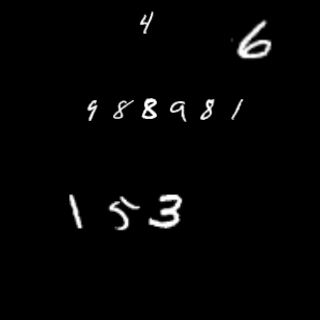 4
6
988981
153